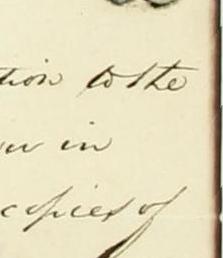 tion to the
in
copies of